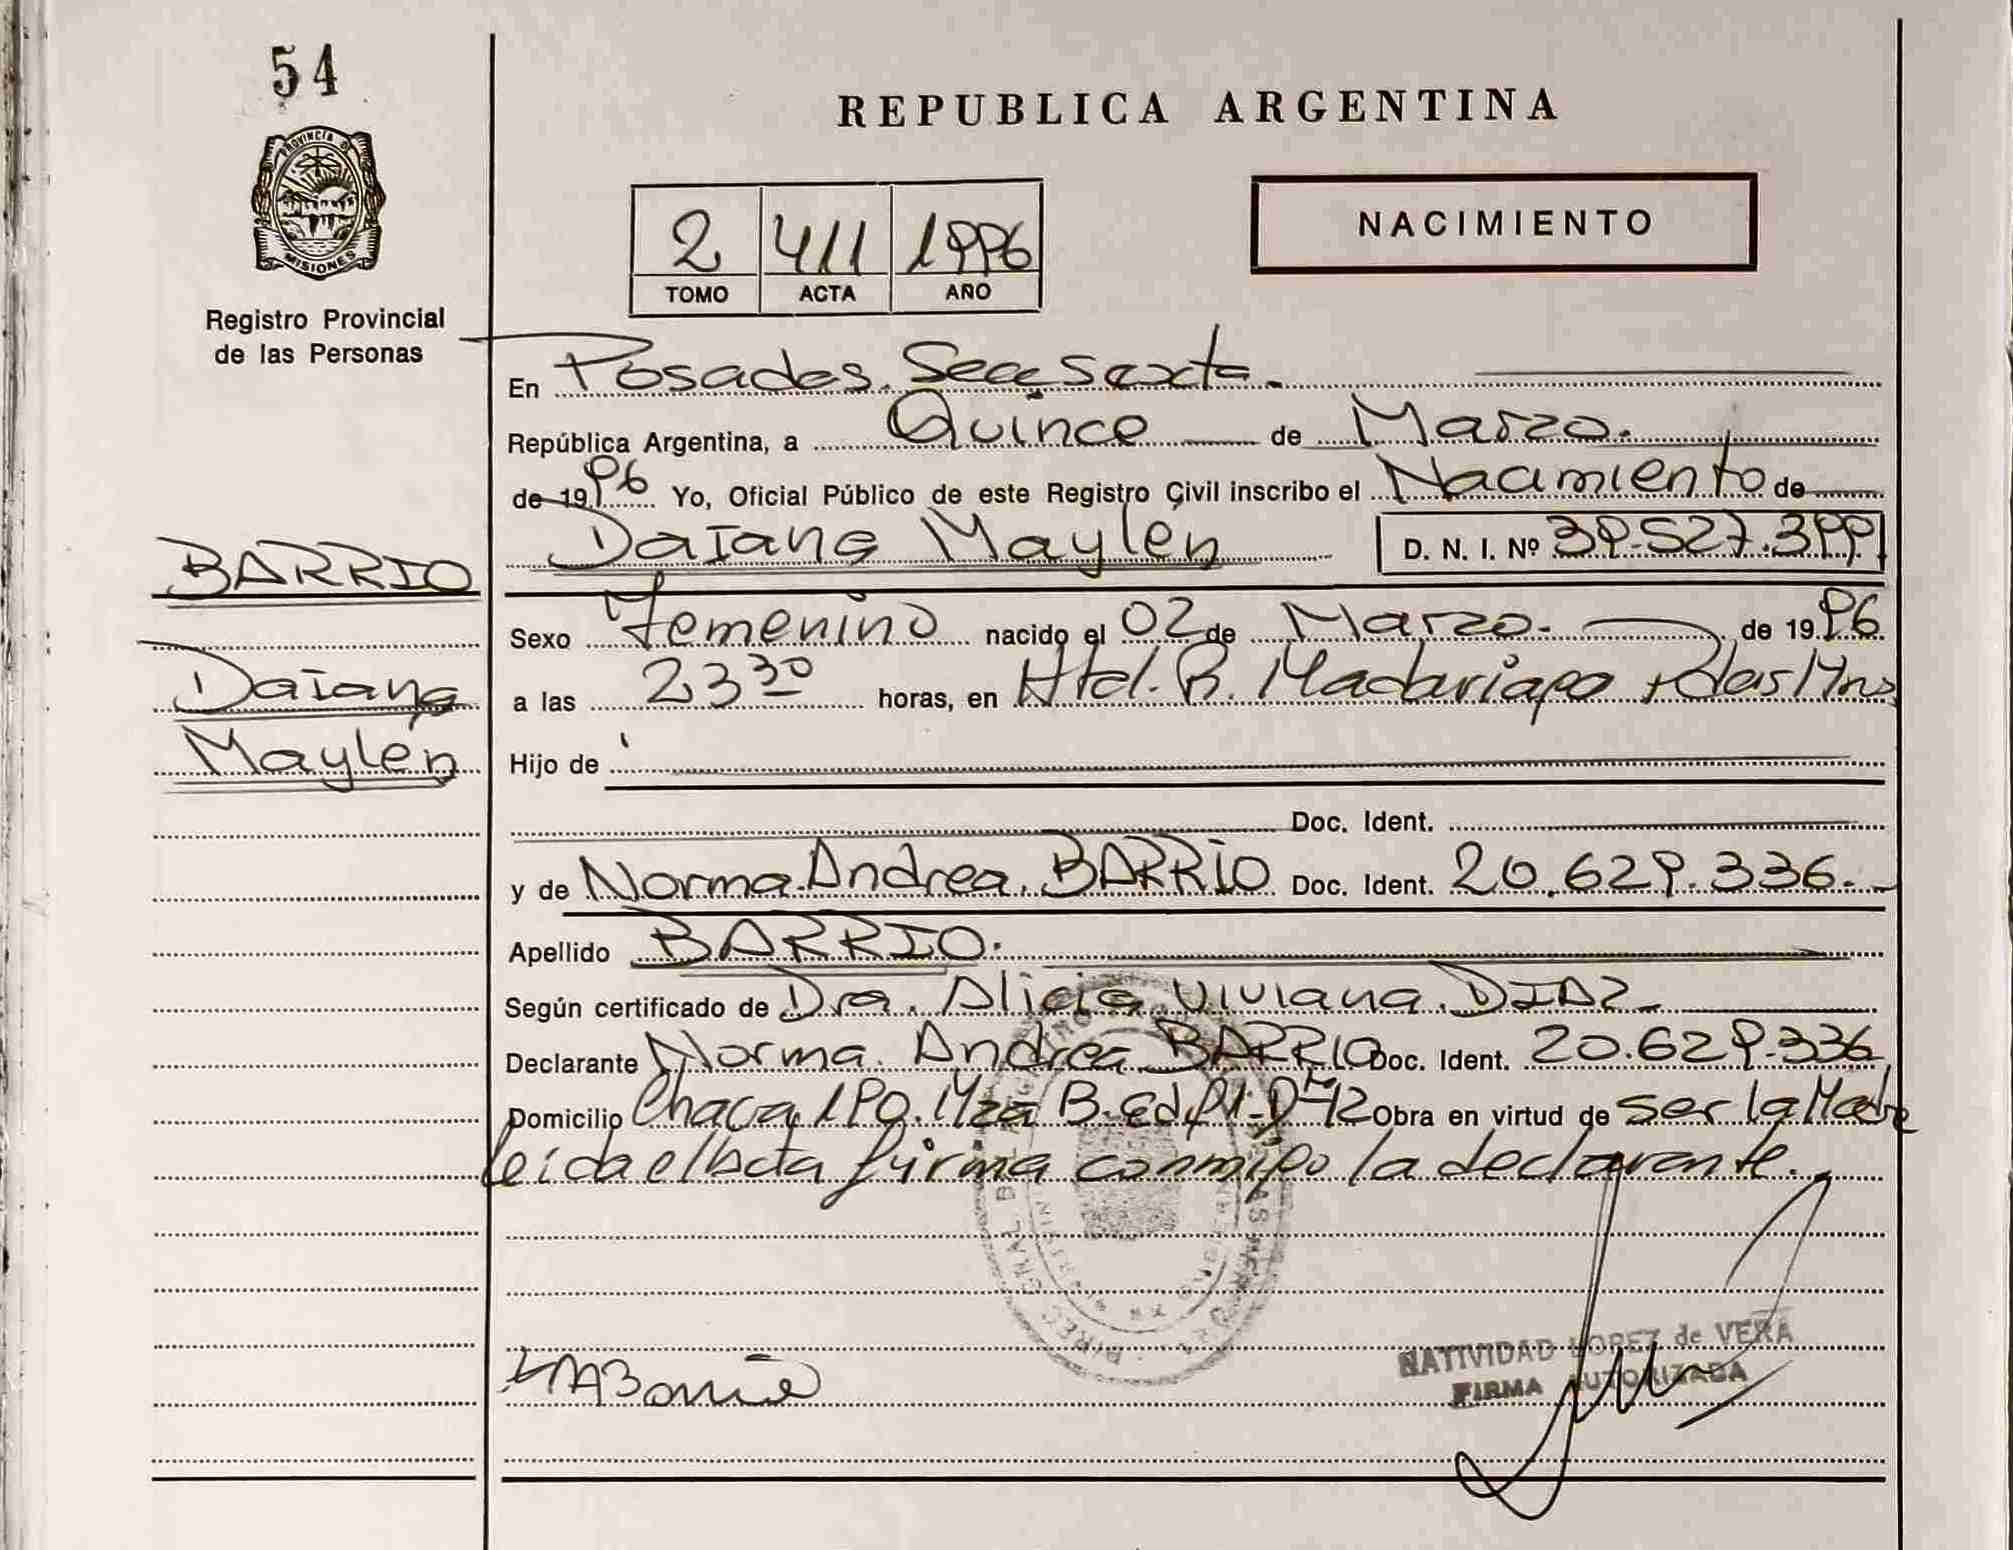 54
REPUBLICA ARGENTINA
PROVINCIA D
MISIONES
Registro Provincial
de las Personas
NACIMIENTO
2 411 1996
TOMO ACTA AÑO
En Posadas. Secc Sexta.
República Argentina, a Quince de Marzo.
de 19 96 Yo, Oficial Público de este Registro Civil inscribo el Nacimiento de
BARRIO
Daiana Maylén D. N. I. Nº 39.527.399
Sexo Femenino nacido el 02 de Marzo. de 19 96
Daiana
a las 23 30 horas, en Htal. R. Madariaga Pdas Mns
Maylén
Hijo de
Doc. Ident.
y de Norma Andrea BARRIO Doc. Ident. 20.629.336.
Apellido BARRIO.
Según certificado de Dra. Alicia Viviana DIAZ
Declarante Norma Andrea BARRIO Doc. Ident. 20.629.336
Domicilio Chacra 190. Mza B. Ed. Obra en virtud de ser la Madre
leída el acta firma conmigo la declarante.
NATIVIDAD LOPEZ de VERA
FIRMA AUTORIZADA